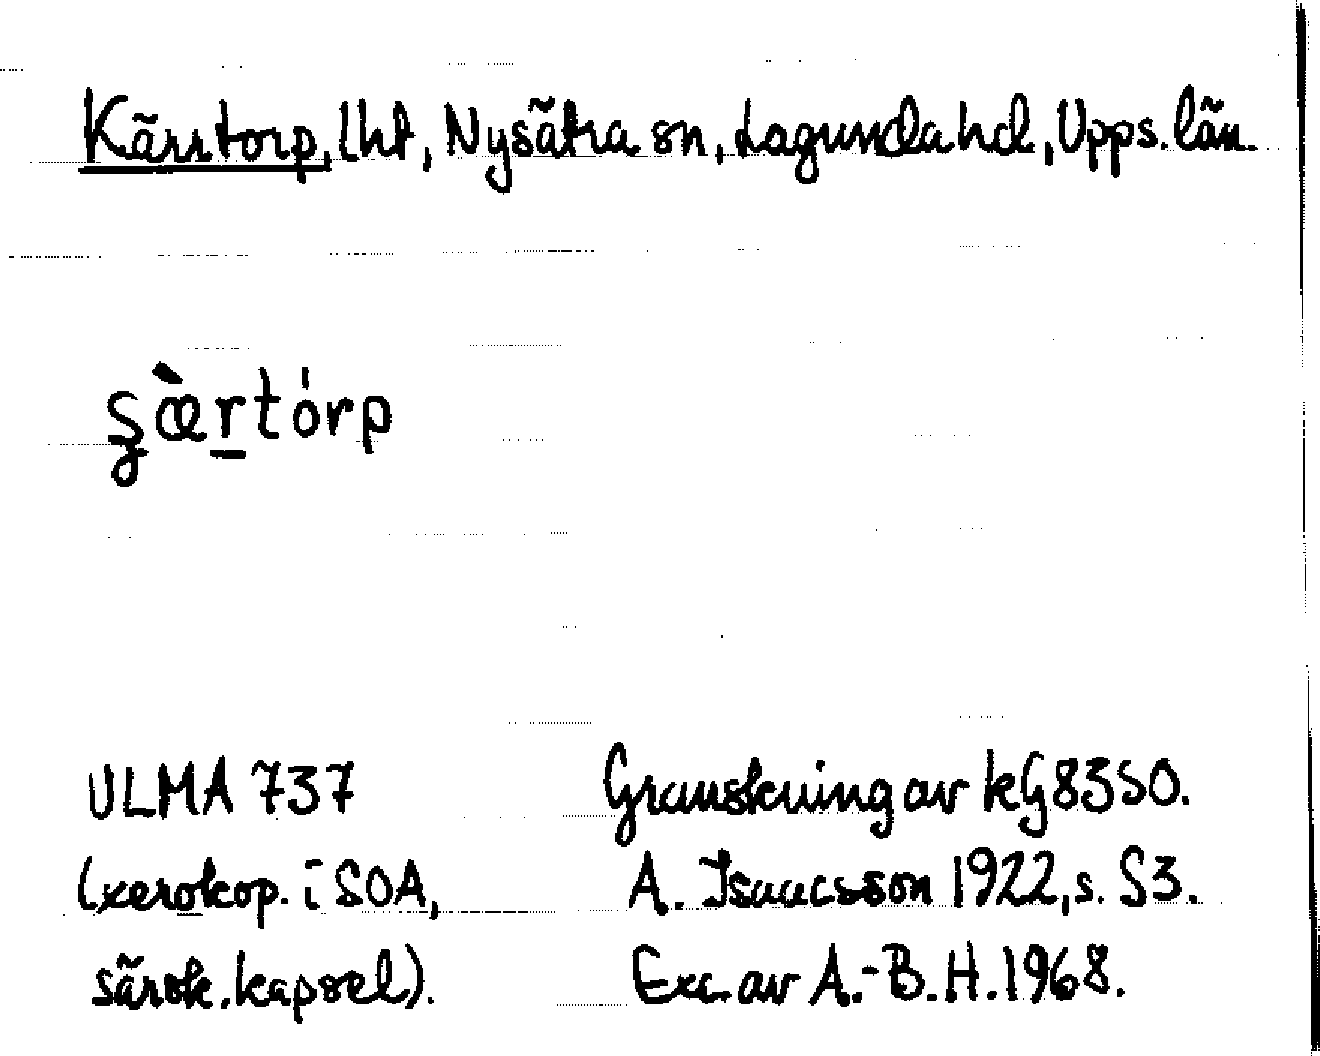 Kärrtorp, lht, Nysätra sn, Lagunda hd, Upps. län.
s̡æ̀r̲tȯrp
ULMA 737
(xerokop. i SOA,
särsk. kapsel).
Granskning av kG 8350.
A. Isaacsson 1922, s. 53.
Exc. av A.-B. H. 1968.